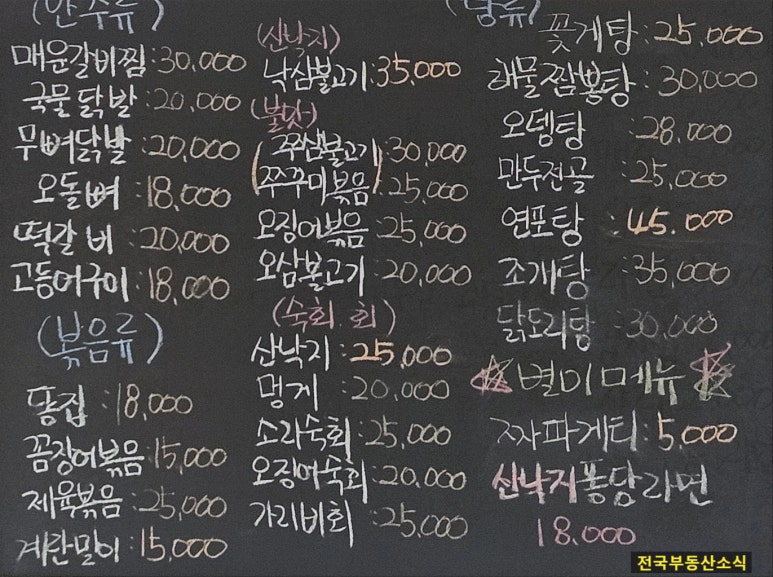 (안주류)
매운갈비찜:30,000
국물닭발:20,000
무뼈닭발:20,000
오돌뼈:18,000
떡갈비:20,000
고등어구이:18,000
(볶음류)
똥집:18,000
꼼장어볶음:15,000
제육볶음:25,000
계란말이:15,000
(산낙지)
낙삼불고기:35,000
(불맛)
쭈삼불고기:30,000
쭈꾸미볶음:25,000
오징어볶음:25,000
오삼불고기:20,000
(숙회.회)
산낙지:25,000
멍게:20,000
소라숙회:25,000
오징어숙회:20,000
가리비회:25,000
(탕류)
꽃게탕:25,000
해물짬뽕탕:30,000
오뎅탕:28,000
만두전골:25,000
연포탕:45.000
조개탕:35,000
닭도리탕:30,000
별미메뉴
짜파게티:5,000
산낙지퐁당라면
18.000
전국부동산소식